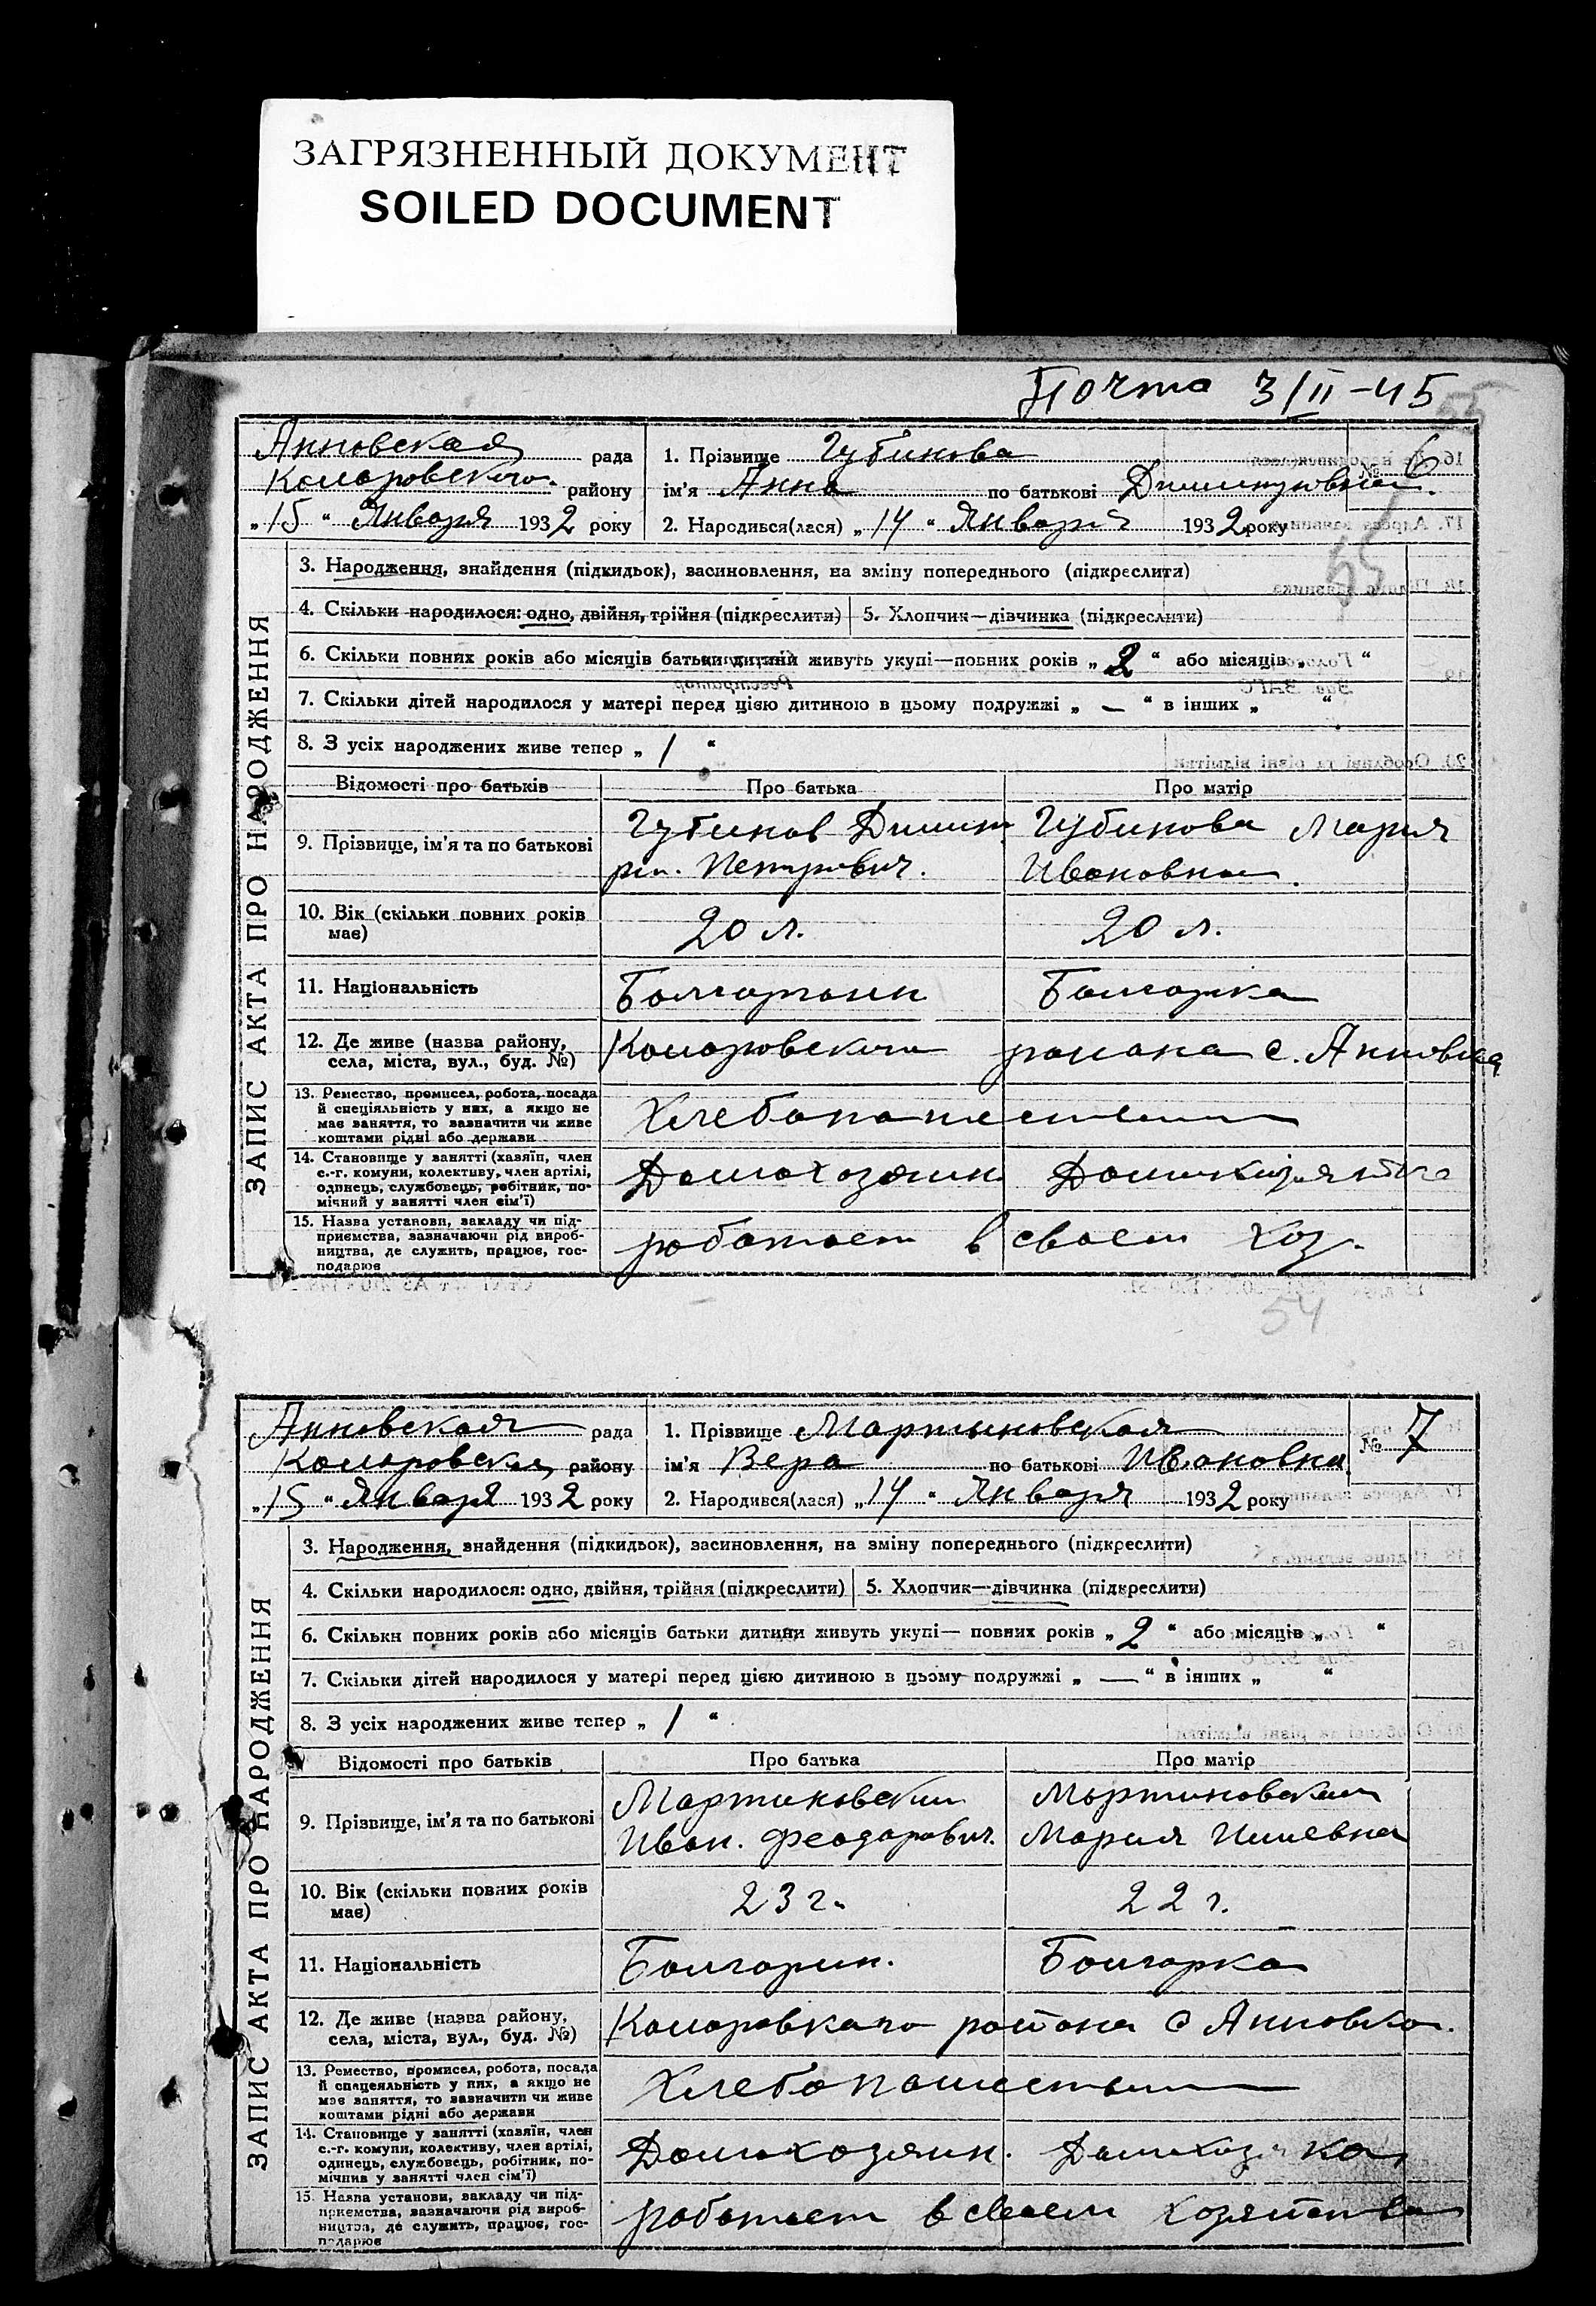 ЗАГРЯЗНЕННЫЙ ДОКУМЕНТ
SOILED DOCUMENT
Почта 3/II-45
ЗАПИС АКТА ПРО НАРОДЖЕННЯ
Анновская рада
Комаровского району
„15“ Января 1932 року
1. Прізвище Губинова
№ 6
ім'я Анна по батькові
2. Народився(лася) „14“ Января 1932 року
55
3. Народження, знайдення (підкидьок), засиновлення, на зміну попереднього (підкреслити)
4. Скільки народилося: одно, двійня, трійня (підкреслити) 5. Хлопчик—дівчинка (підкреслити)
6. Скільки повних років або місяців батьки дитини живуть укупі—повних років „2“ або місяців „ “
7. Скільки дітей народилося у матері перед цією дитиною в цьому подружжі „—“ в інших „ “
8. З усіх народжених живе тепер „1“
Відомості про батьків Про батька Про матір
9. Прізвище, ім'я та по батькові
Губинов Димит Губинова Мария
рий. Петрович. Ивановна.
10. Вік (скільки повних років має) 20 л. 20 л.
11. Національність Болгарин Болгарка
12. Де живе (назва району, села, міста, вул., буд. №) Комаровского района с. Анновка
13. Ремество, промисел, робота, посада
й спеціяльність у них, а якщо не
має заняття, то зазначити чи живе
коштами рідні або держави
Хлебопашество
14. Становище у занятті (хазяїн, член
с.-г. комуни, колективу, член артілі,
одинець, службовець, робітник, по-
мічний у занятті член сім'ї)
Домохозяин Домохозяйка
15. Назва установи, закладу чи під-
приємства, зазначаючи рід вироб-
ництва, де служить, працює, гос-
подарює
работает в своем хоз.
54
ЗАПИС АКТА ПРО НАРОДЖЕННЯ
Анновская рада
Комаровская району
„15“ Января 1932 року
1. Прізвище Мартыновская
№ 7
ім'я Вера по батькові Ивановна
2. Народився(лася) „14“ Января 1932 року
3. Народження, знайдення (підкидьок), засиновлення, на зміну попереднього (підкреслити)
4. Скільки народилося: одно, двійня, трійня (підкреслити) 5. Хлопчик—дівчинка (підкреслити)
6. Скільки повних років або місяців батьки дитини живуть укупі— повних років „2“ або місяців „ “
7. Скільки дітей народилося у матері перед цією дитиною в цьому подружжі „—“ в інших „ “
8. З усіх народжених живе тепер „1“
Відомості про батьків Про батька Про матір
9. Прізвище, ім'я та по батькові
Мартиновский Мартиновская
Иван. Феодорович. Мария
10. Вік (скільки повних років має) 23 г. 22 г.
11. Національність Болгарин. Болгарка
12. Де живе (назва району, села, міста, вул., буд. №) Комаровкаго района с Анновка.
13. Ремество, промисел, робота, посада
й спецеяльність у них, а якщо не
має заняття, то зазначити чи живе
коштами рідні або держави
Хлебопашество
14. Становище у занятті (хазяїн, член
с.-г. комуни, колективу, член артілі,
одинець, службовець, робітник, по-
мічник у занятті член сім'ї)
Домохозяин. Домохозяка
15. Назва установи, закладу чи під-
приємства, зазначаючи рід вироб-
ництва, де служить, працює, гос-
подарює
работает в своем хозяйства